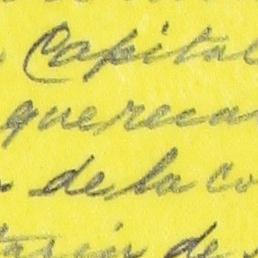 Capital
que reca
de la co
de